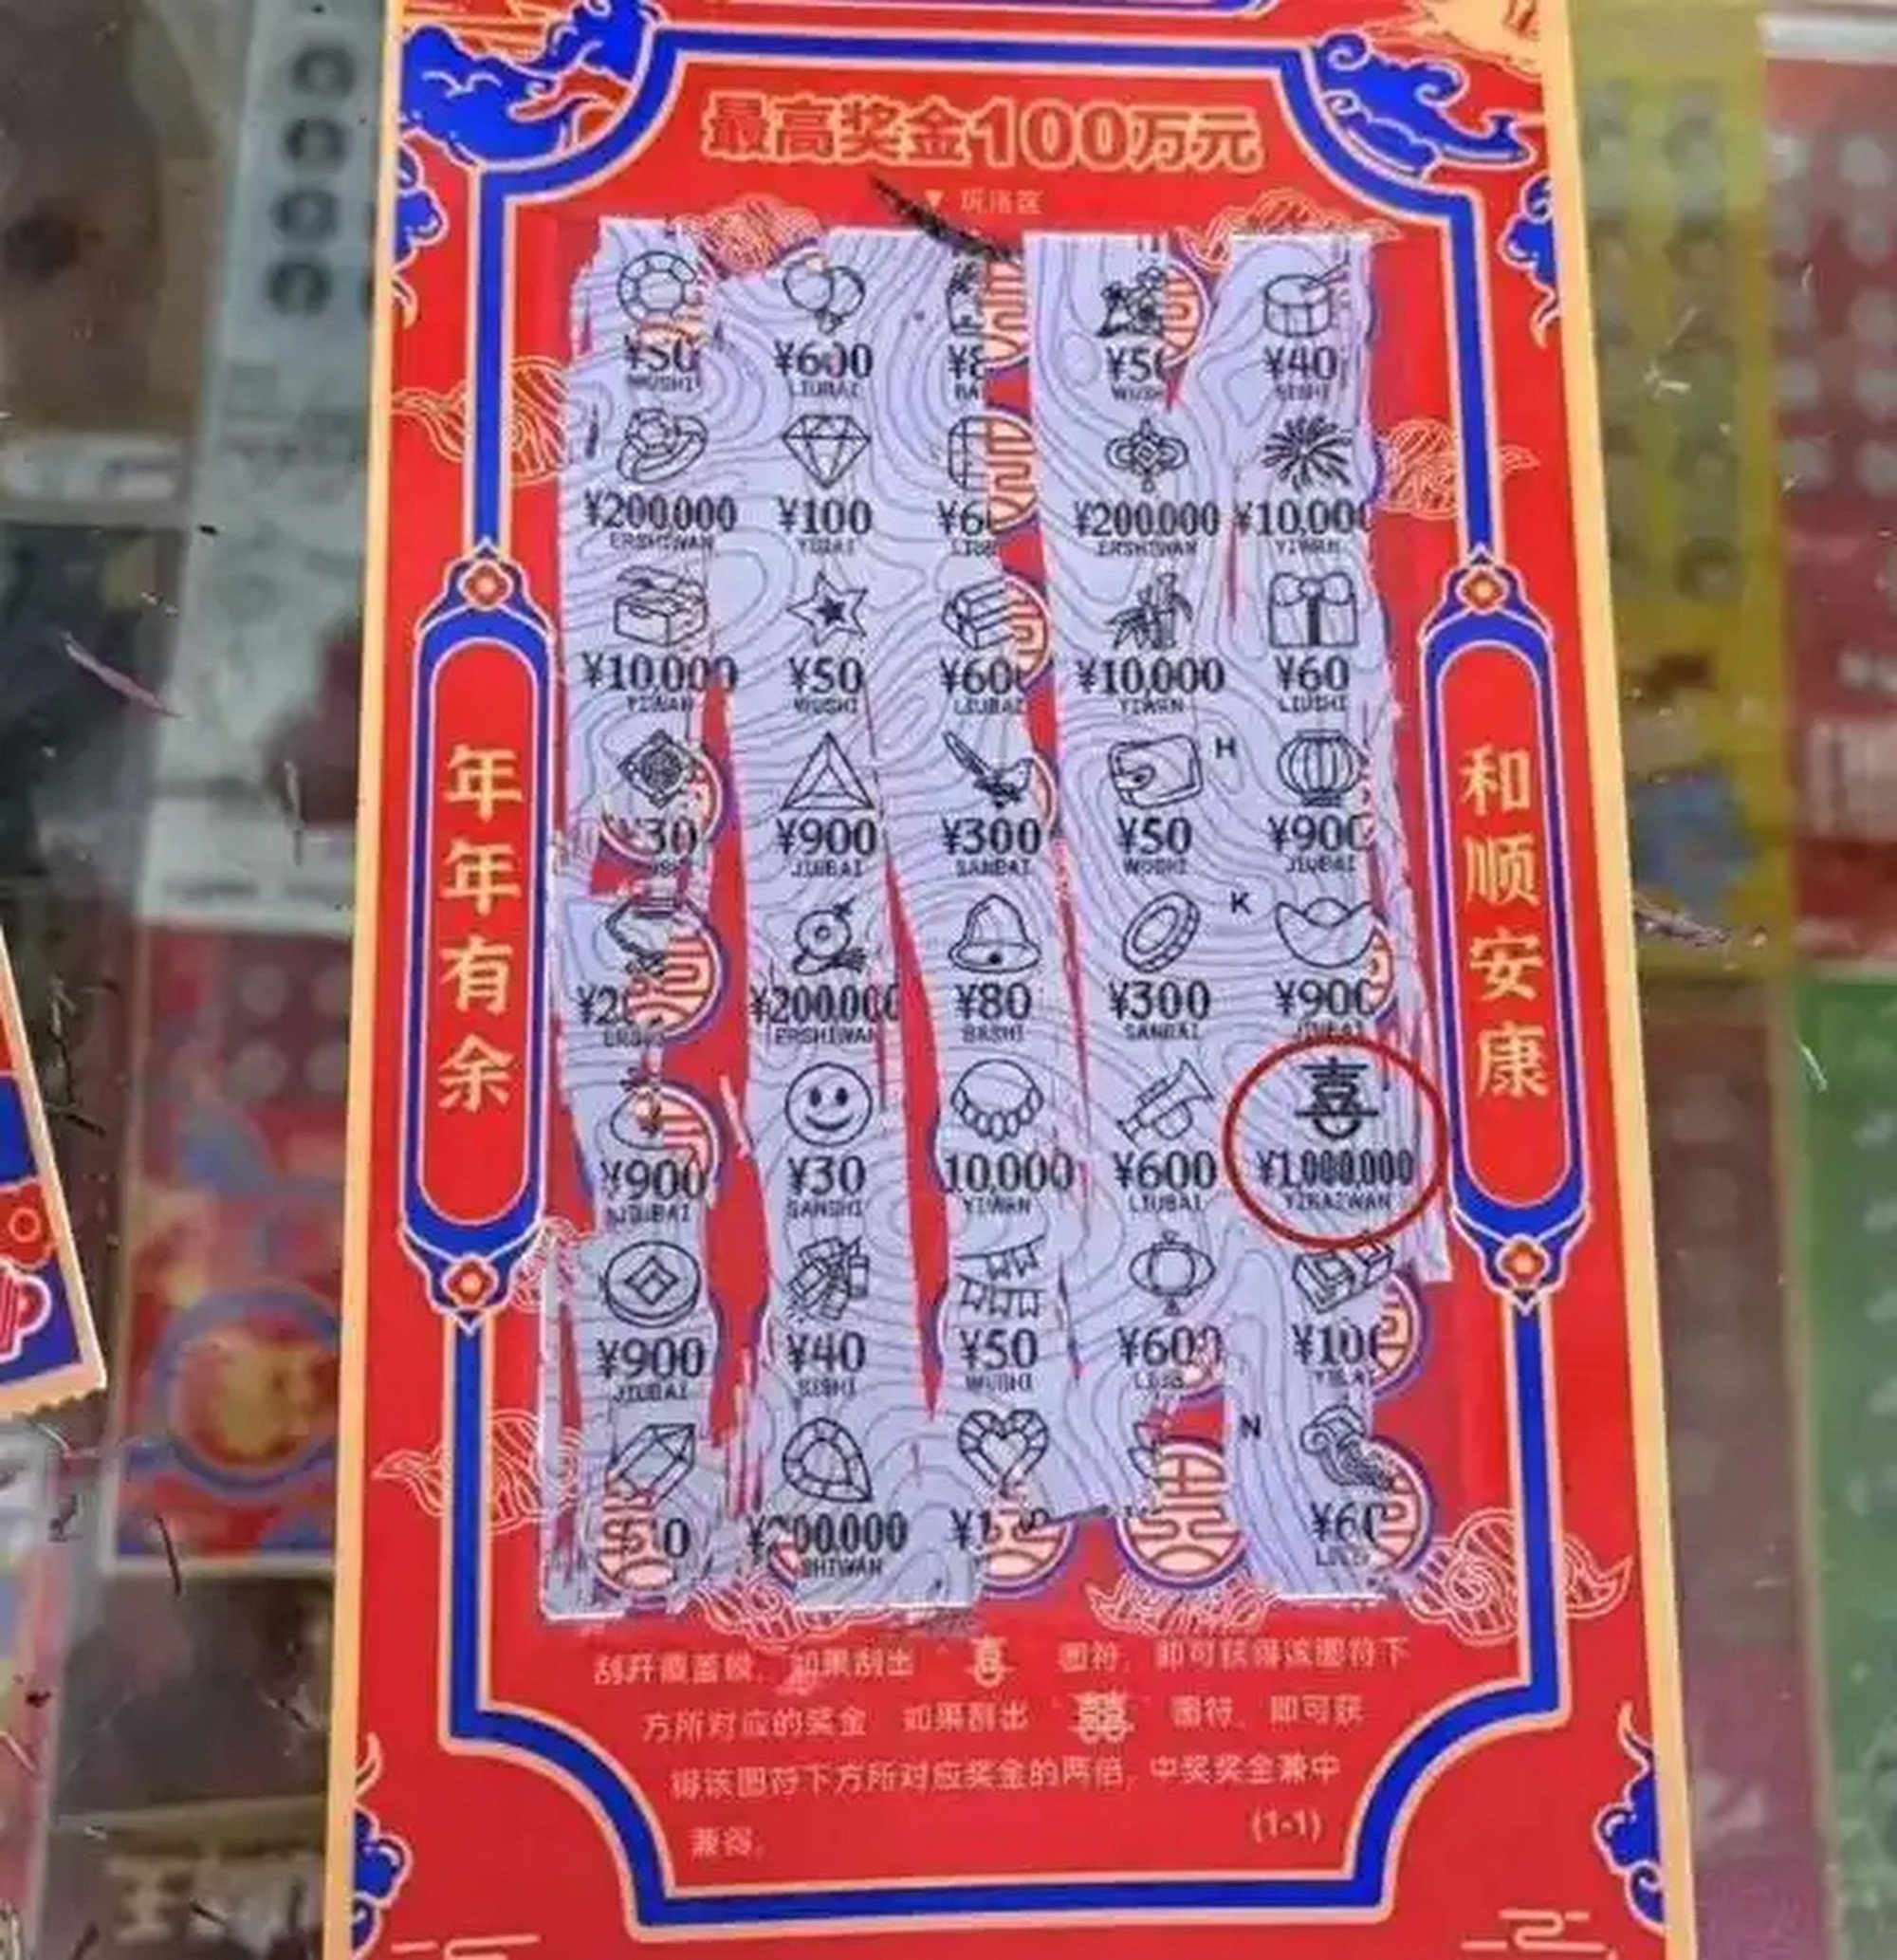 最高奖金100万元
玩法区
¥50 ¥600 ¥8 ¥5 ¥40
WUSHI LIUBAI BA WUSH SISHI
¥200,000 ¥100 ¥6 ¥200,000 ¥10,000
ERSHIWAN YIBAI LIUB ERSHIWAN YIWAN
¥10,000 ¥50 ¥60 ¥10,000 ¥60
YIWAN WUSHI LIUBAI YIWAN LIUSHI
H
¥30 ¥900 ¥300 ¥50 ¥900
JIUBAI SANBAI WUSHI JIUBAI
K
¥20 ¥200,000 ¥80 ¥300 ¥900
ERSHIWAN BASHI SANBAI JIUBAI
喜
¥900 ¥30 10,000 ¥600 ¥1,000,000
JIUBAI SANSHI YIWAN LIUBAI YIBAIWAN
¥900 ¥40 ¥50 ¥600 ¥10
JIUBAI SISHI WUSHI
N
00,000 ¥1 ¥6
SHIWAN
年年有余
和顺安康
刮开覆盖膜，如果刮出“喜”图符，即可获得该图符下
方所对应的奖金 如果刮出“囍”图符，即可获
得该图符下方所对应奖金的两倍，中奖奖金兼中
兼得。
(1-1)